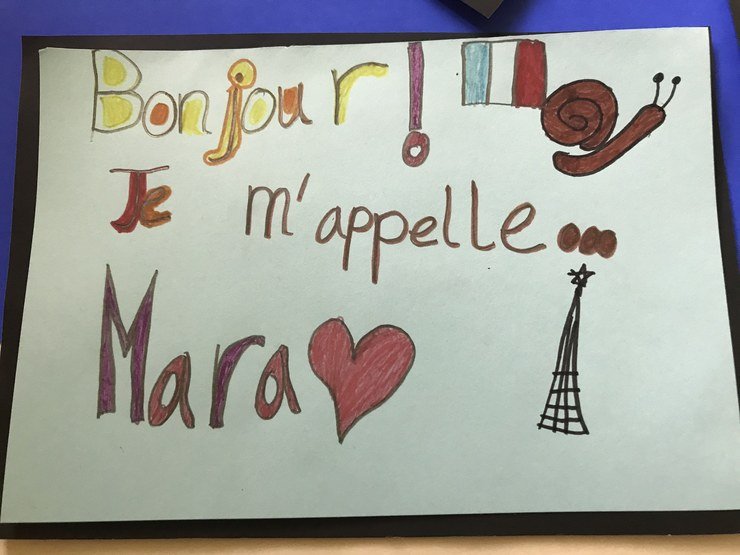 Bonjour!
Je m'appelle...
Mara